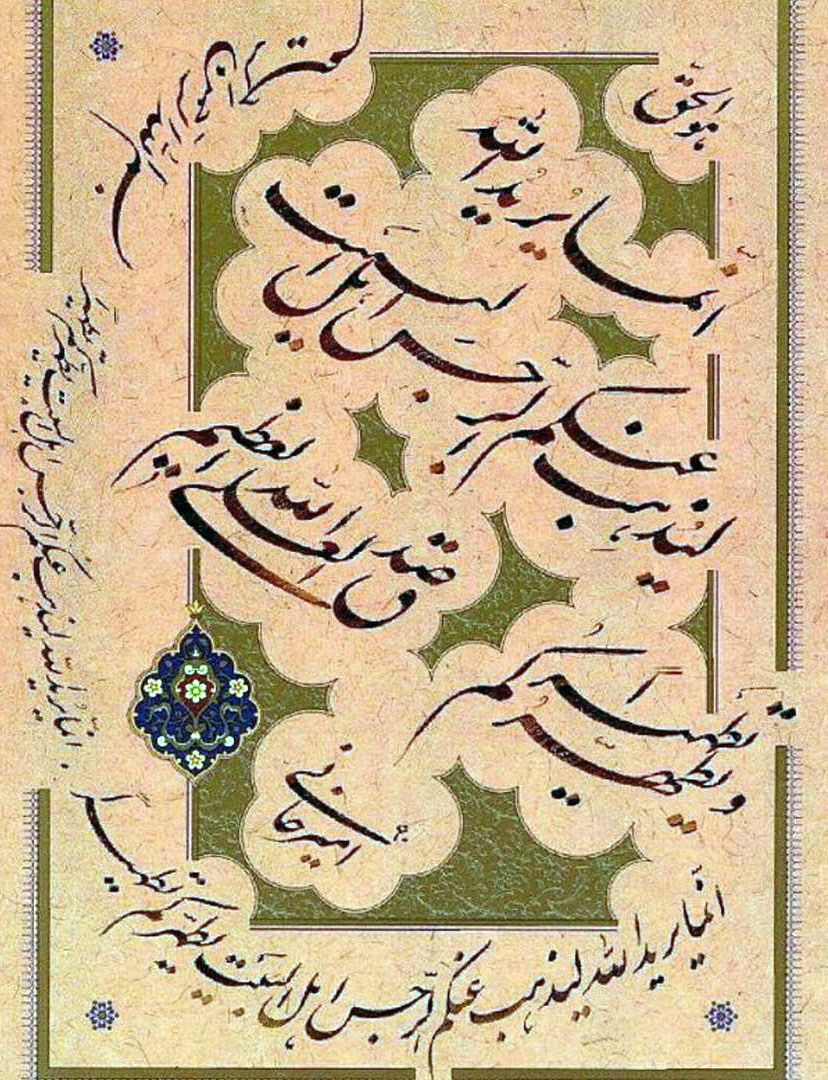 هو الحق
بسم الله الرحمن الرحیم
انما یرید الله
لیذهب عنکم الرجس اهل البیت
و یطهرکم تطهیرا
و صدق الله العلی العظیم
امیرخانی
انما یرید الله لیذهب عنکم الرجس اهل البیت یطهرکم تطهیرا
انما یرید الله لیذهب عنکم الرجس اهل البیت و یطهرکم تطهیرا